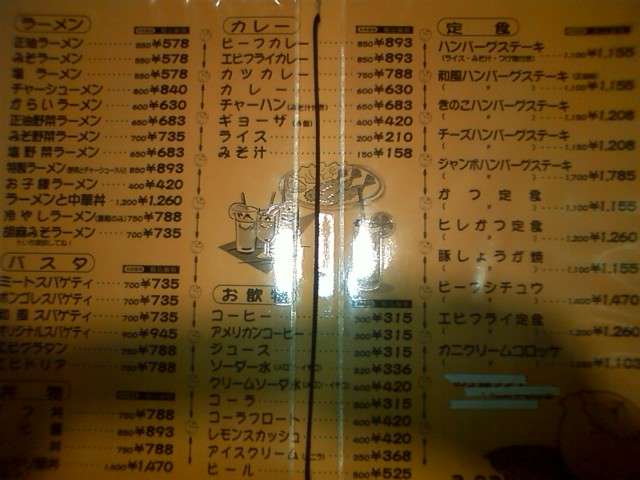 ラーメン
正油ラーメン 550 ¥578
みそラーメン 550 ¥578
塩 ラーメン 550 ¥578
チャーシューメン 800 ¥840
からいラーメン 600 ¥630
正油野菜ラーメン 650 ¥683
みそ野菜ラーメン 700 ¥735
塩野菜ラーメン 650 ¥683
特製ラーメン 850 ¥893
お子様ラーメン 400 ¥420
ラーメンと中華丼 1,200 ¥1,260
冷やしラーメン(夏期のみ) 750 ¥788
胡麻みそラーメン 700 ¥735
パスタ
ミートスパゲティ 700 ¥735
ボンゴレスパゲティ 700 ¥735
和風スパゲティ 700 ¥735
オリジナルスパゲティ 900 ¥945
エビグラタン 750 ¥788
エビドリア 750 ¥788
丼
750 ¥788
850 ¥893
丼 750 ¥788
丼 1,400 ¥1,470
カレー
ビーフカレー 850 ¥893
エビフライカレー 850 ¥893
カツカレー 750 ¥788
カレー 600 ¥630
チャーハン(みそ汁付) 650 ¥683
ギョーザ(6個) 400 ¥420
ライス 200 ¥210
みそ汁 150 ¥158
お飲物
コーヒー 300 ¥315
アメリカンコーヒー 300 ¥315
ジュース 300 ¥315
ソーダ水(メロン・イチゴ) 320 ¥336
クリームソーダ水(メロン・イチゴ) 400 ¥420
コーラ 300 ¥315
コーラフロート 400 ¥420
レモンスカッシュ 400 ¥420
アイスクリーム(バニラ) 350 ¥368
ビール 500 ¥525
定食
ハンバーグステーキ 1,100 ¥1,155
(ライス・みそ汁・つけ物付き)
和風ハンバーグステーキ 1,100 ¥1,155
( 〃 )
きのこハンバーグステーキ 1,150 ¥1,208
( 〃 )
チーズハンバーグステーキ 1,150 ¥1,208
( 〃 )
ジャンボハンバーグステーキ 1,700 ¥1,785
( 〃 )
かつ定食 1,100 ¥1,155
( 〃 )
ヒレかつ定食 1,200 ¥1,260
( 〃 )
豚しょうが焼 1,100 ¥1,155
( 〃 )
ビーフシチュウ 1,400 ¥1,470
( 〃 )
エビフライ定食 1,200 ¥1,260
( 〃 )
カニクリームコロッケ 1,050 ¥1,103
( 〃 )